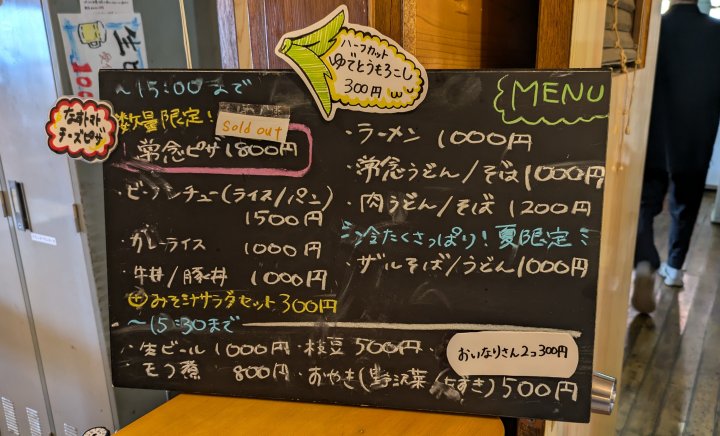 ハーフカット
ゆでとうもろこし
300円
なすトマト
チーズピザ
〜15:00まで
数量限定!
Sold out
常念ピザ 1800円
・ビーフシチュー(ライス/パン)
1500円
・カレーライス 1000円
・牛丼/豚丼 1000円
⊕みそ汁サラダセット 300円
〜15:30まで
・生ビール 1000円
・モツ煮 800円
MENU
・ラーメン 1000円
・常念うどん/そば 1000円
・肉うどん/そば 1200円
冷たくさっぱり!夏限定
・ザルそば/うどん 1000円
・枝豆 500円
おいなりさん2つ300円
・おやき(野沢菜/あずき)500円